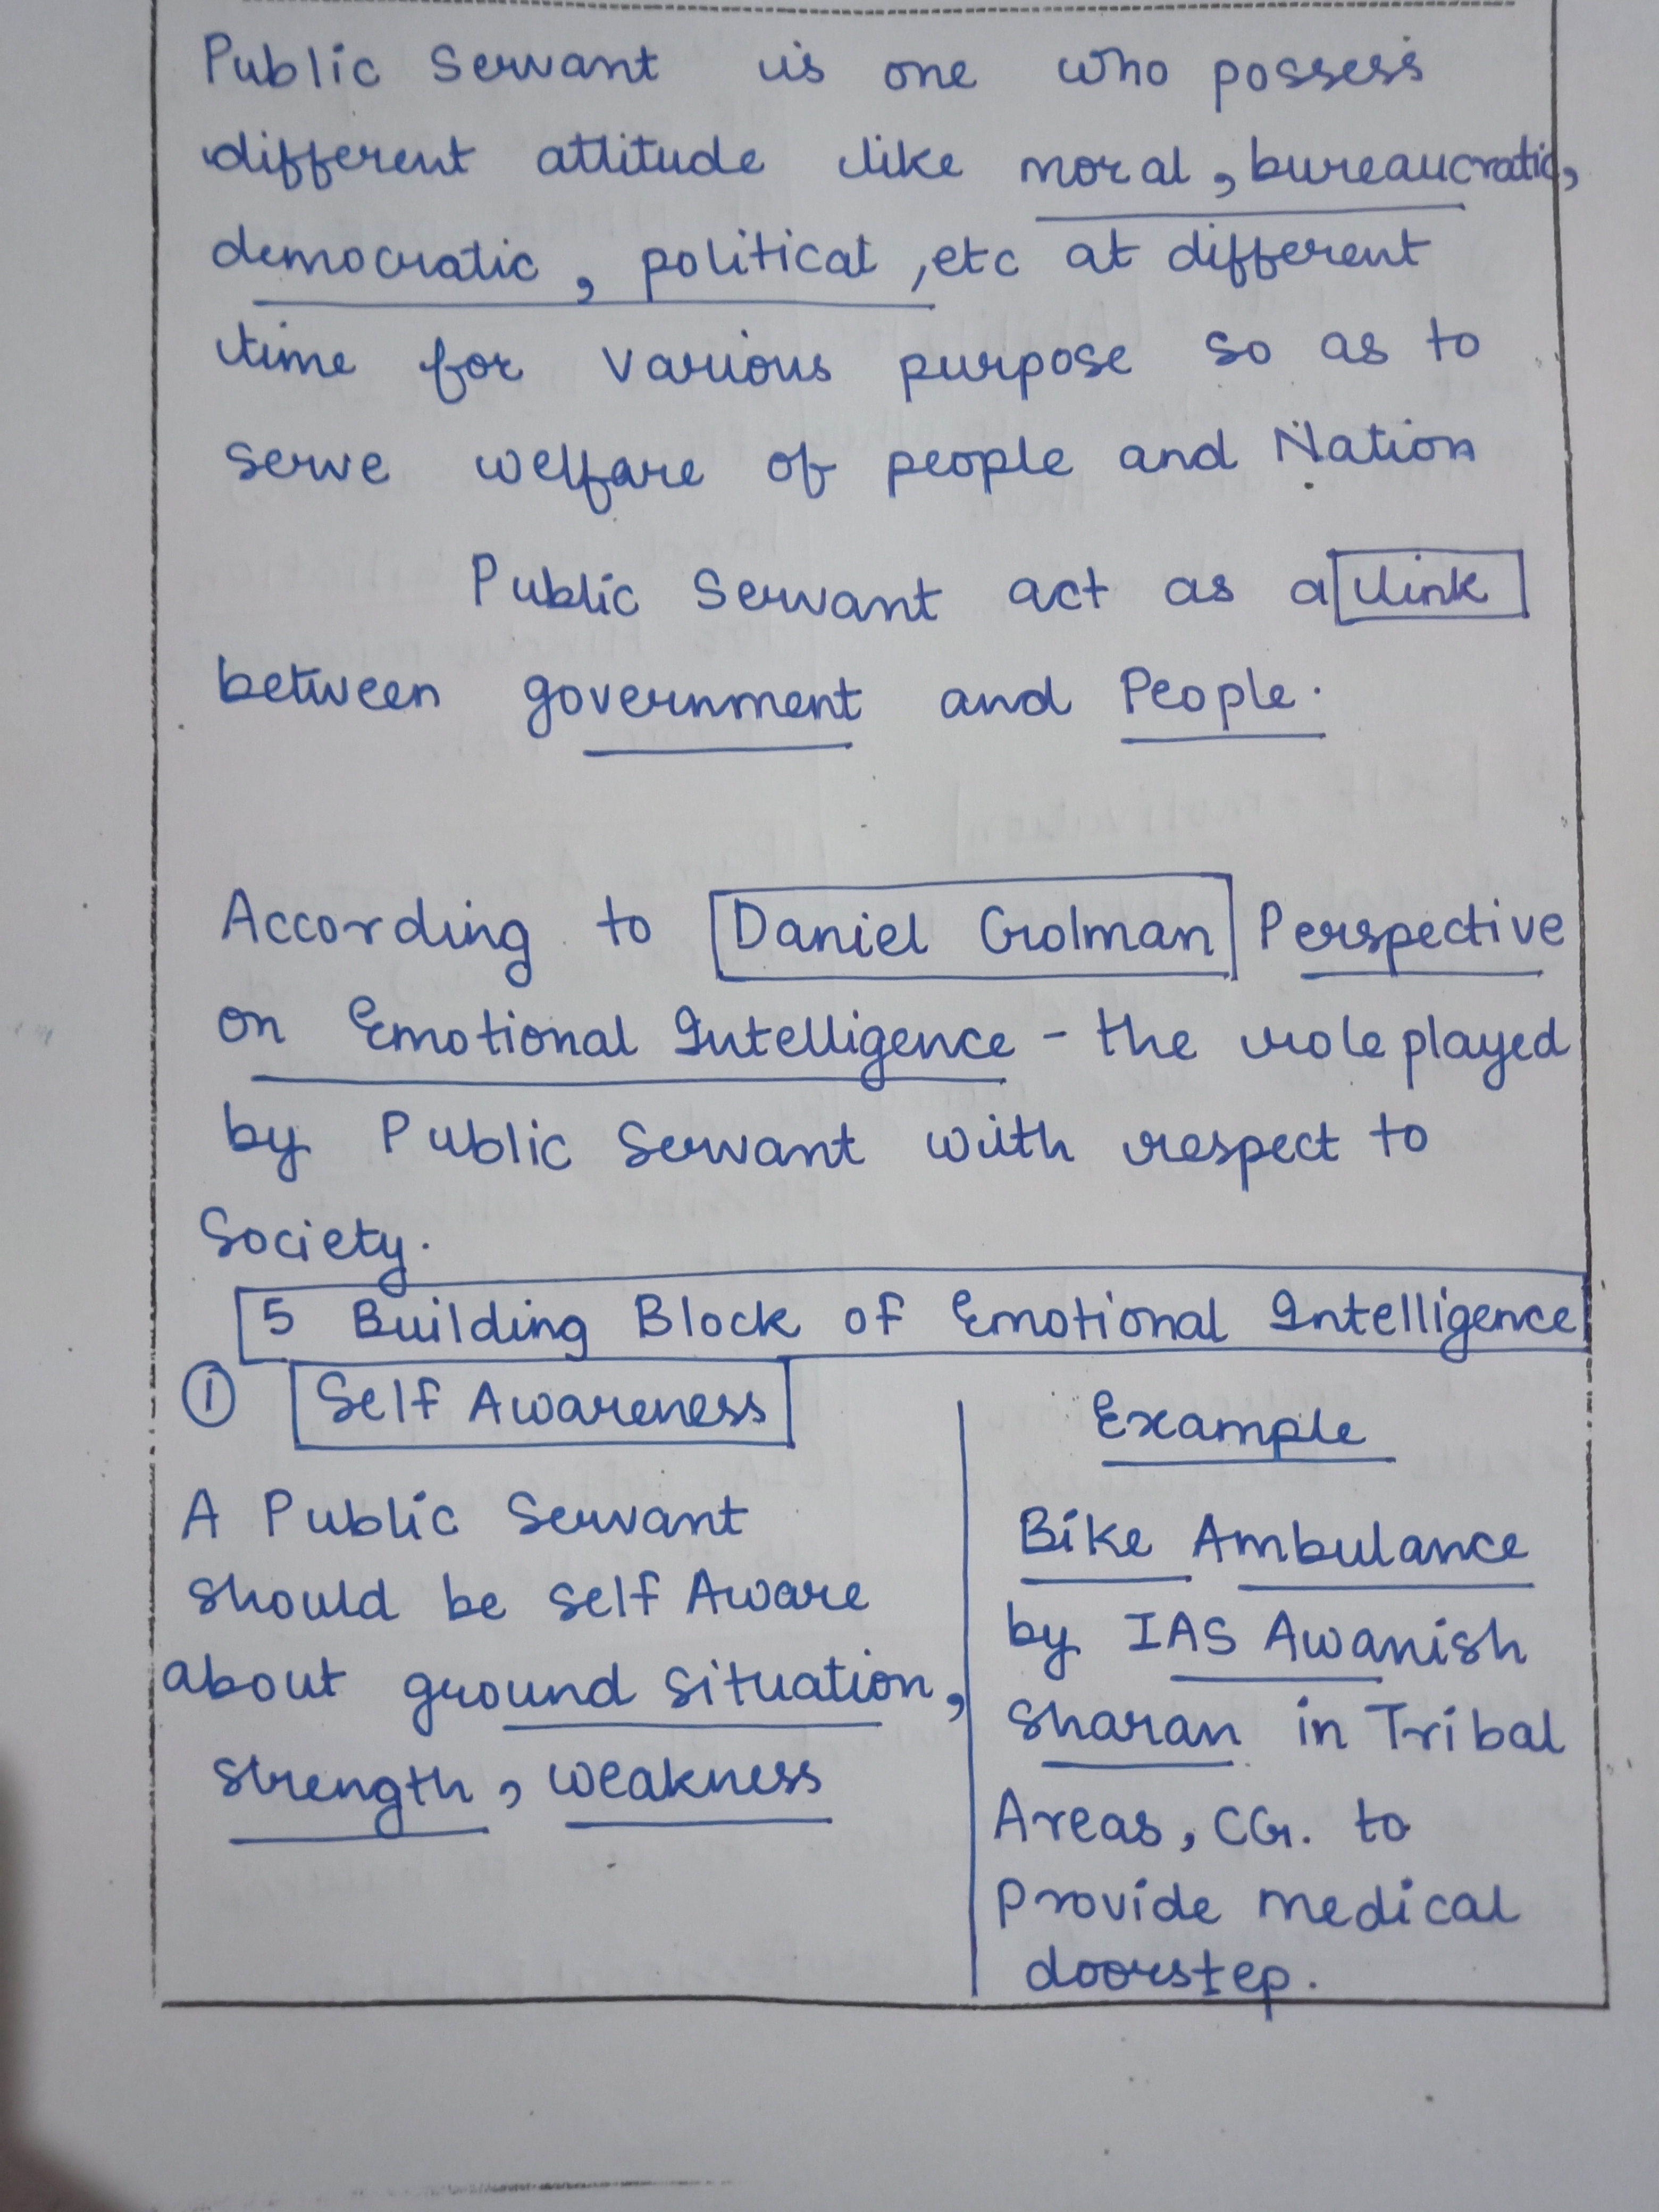 Public Servant is one who possess
different attitude like moral, bureaucratic,
democratic, political, etc at different
time for various purpose so as to
serve welfare of people and Nation
Public Servant act as a link
between government and People.
According to Daniel Golman Perspective
on Emotional Intelligence - the role played
by Public Servant with respect to
Society.
5 Building Block of Emotional Intelligence
① Self Awareness
A Public Servant
should be self Aware
about ground situation,
strength, weakness
Example
Bike Ambulance
by IAS Awanish
Sharan in Tribal
Areas, CG. to
Provide medical
doorstep.